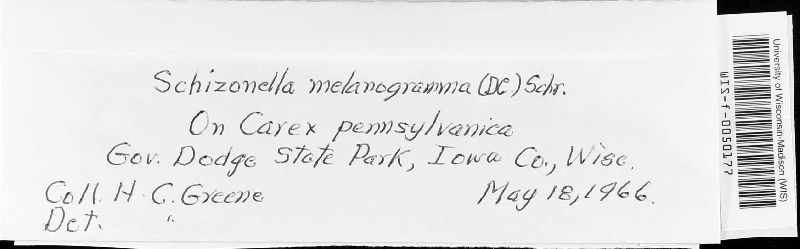 Schizonella melanogramma (DC.) Schr.
On Carex pennsylvanica
Gov. Dodge State Park, Iowa Co., Wisc.
Coll. H. C. Greene May 18, 1966.
Det. "
University of Wisconsin-Madison (WIS)
WIS-f-0050177